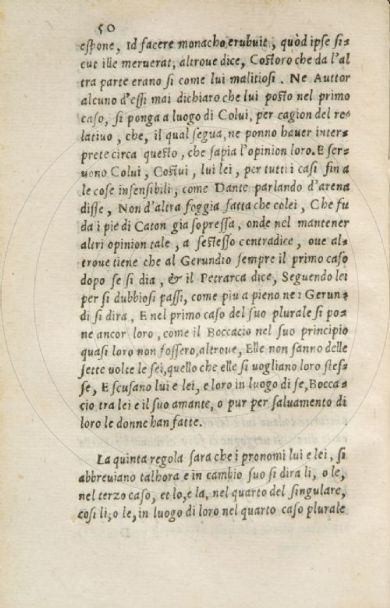 50
espone, Id facere monacho erubuit, quòd ipse si-
cut ille meruerat, altroue dice, Costoro che da l'al
tra parte erano si come lui malitiosi. Ne Auttor
alcuno d'essi mai dichiaro che lui posto nel primo
caso, si ponga a luogo di Colui, per cagion del re-
latiuo, che, il qual segua, ne ponno hauer inter-
prete circa questo, che sapia l'opinion loro. E ser-
uono Colui, Costui, lui lei, per tutti i casi fin a
le cose insensibili, come Dante parlando d'arena
disse, Non d'altra foggia fatta che colei, Che fu
da i pie di Caton gia sopressa, onde nel mantener
altri opinion tale, a sestesso contradice, oue al-
troue tiene che al Gerundio sempre il primo caso
dopo se si dia, & il Petrarca dice, Seguendo lei
per si dubbiosi passi, come piu a pieno ne i Gerun-
di si dira, E nel primo caso del suo plurale si po-
ne ancor loro, come il Boccacio nel suo principio
quasi loro non fossero, altroue, Elle non sanno delle
sette volte le sei, quello che elle si vogliano loro stes-
se, E scusano lui e lei, e loro in luogo di se, Bocca-
cio tra lei e il suo amante, o pur per saluamento di
loro le donne han fatte.
La quinta regola sara che i pronomi lui e lei, si
abbreuiano talhora e in cambio suo si dira li, o le,
nel terzo caso, et lo, e la, nel quarto del singulare,
cosi li, o le, in luogo di loro nel quarto caso plurale